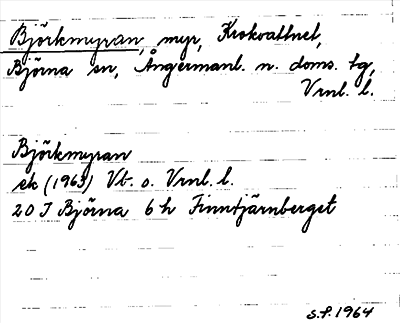 Björkmyran, myr, Krokvattnet,
Björna sn, Ångermanl. n. doms. tg,
Vrnl. l.
Björkmyran
ek (1963) Vb. o. Vrnl. l.
20 J Björna 6 h Finntjärnberget
s.f. 1964